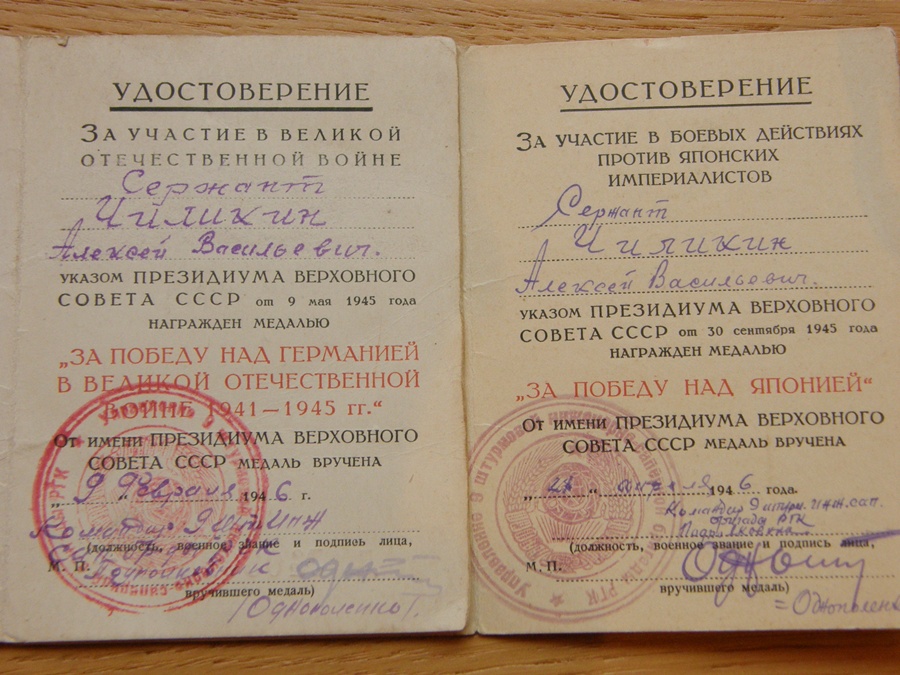 УДОСТОВЕРЕНИЕ
ЗА УЧАСТИЕ В ВЕЛИКОЙ
ОТЕЧЕСТВЕННОЙ ВОЙНЕ
Сержант
Чиликин
Алексей Васильевич.
УКАЗОМ ПРЕЗИДИУМА ВЕРХОВНОГО
СОВЕТА СССР от 9 мая 1945 года
НАГРАЖДЕН МЕДАЛЬЮ
„ЗА ПОБЕДУ НАД ГЕРМАНИЕЙ
В ВЕЛИКОЙ ОТЕЧЕСТВЕННОЙ
ВОЙНЕ 1941—1945 гг.“
ОТ ИМЕНИ ПРЕЗИДИУМА ВЕРХОВНОГО
СОВЕТА СССР МЕДАЛЬ ВРУЧЕНА
„9 Февраля 1946 г.
Командир 9
(должность, военное звание и подпись лица,
М. П.
вручившего медаль)
УДОСТОВЕРЕНИЕ
ЗА УЧАСТИЕ В БОЕВЫХ ДЕЙСТВИЯХ
ПРОТИВ ЯПОНСКИХ
ИМПЕРИАЛИСТОВ
Сержант
Чиликин
Алексей Васильевич.
УКАЗОМ ПРЕЗИДИУМА ВЕРХОВНОГО
СОВЕТА СССР от 30 сентября 1945 года
НАГРАЖДЕН МЕДАЛЬЮ
„ЗА ПОБЕДУ НАД ЯПОНИЕЙ“
ОТ ИМЕНИ ПРЕЗИДИУМА ВЕРХОВНОГО
СОВЕТА СССР МЕДАЛЬ ВРУЧЕНА
апреля 1946 года.
Командир 9 штурм. инж. сап.
бригады РГК
(должность, военное звание и подпись лица,
М. П.
вручившего медаль)
Управление 9 штурмовой инженерно-саперной бригады РГК